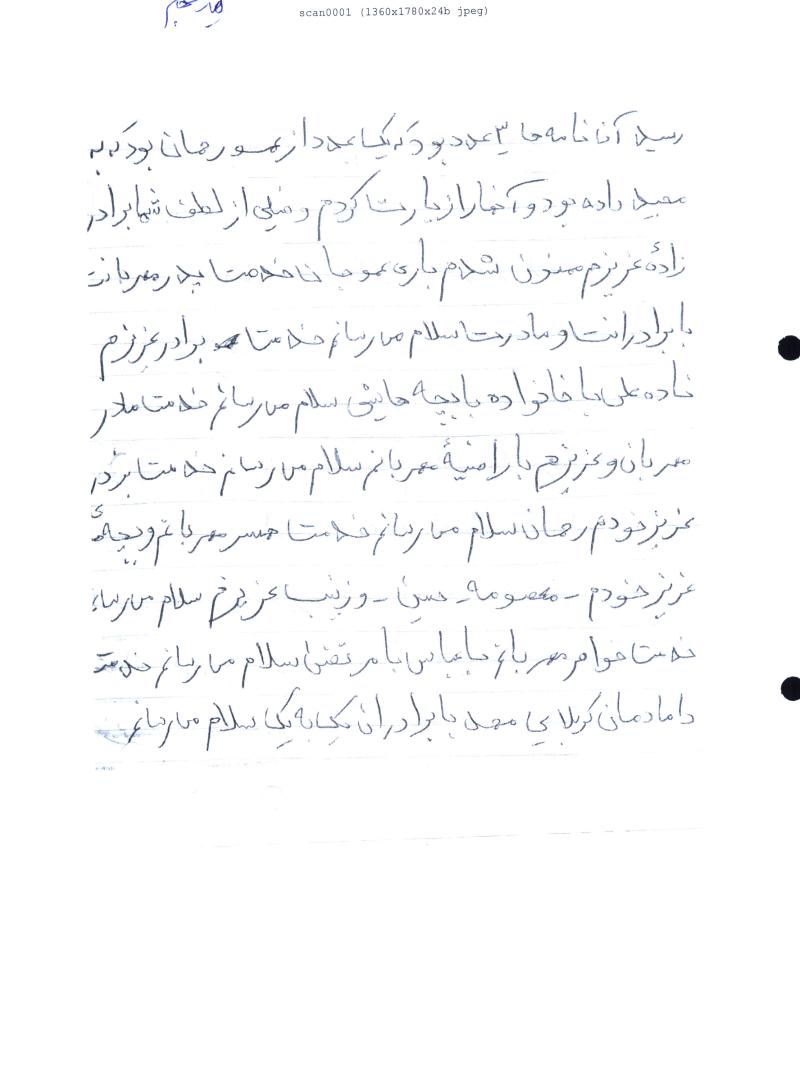 scan0001 (1360x1780x24b jpeg)
رسید آن نامه ها ۳ عدد بود که یک عدد از عمو رحمان بود که به
مجید داده بود و آنها را زیارت کردم و خیلی از لطف شما برادر
زادهٔ عزیزم ممنون شدم باری عمو جان خدمت پدر مهربانت
با برادرانت و مادرت سلام می رسانم خدمت برادر عزیزم
علی با خانواده با بچه هایش سلام می رسانم خدمت مادر
مهربان و عزیزم با راضیهٔ مهربانم سلام می رسانم خدمت برادر
عزیز خودم رحمان سلام می رسانم خدمت همسر مهربانم و بچه های
عزیز خودم - معصومه - حسین - و زینب عزیزم سلام می رسانم
خدمت خواهر مهربانم با عباس با مرتضی سلام می رسانم خدمت
دامادمان کربلایی محمد با برادران یک به یک سلام می رسانم